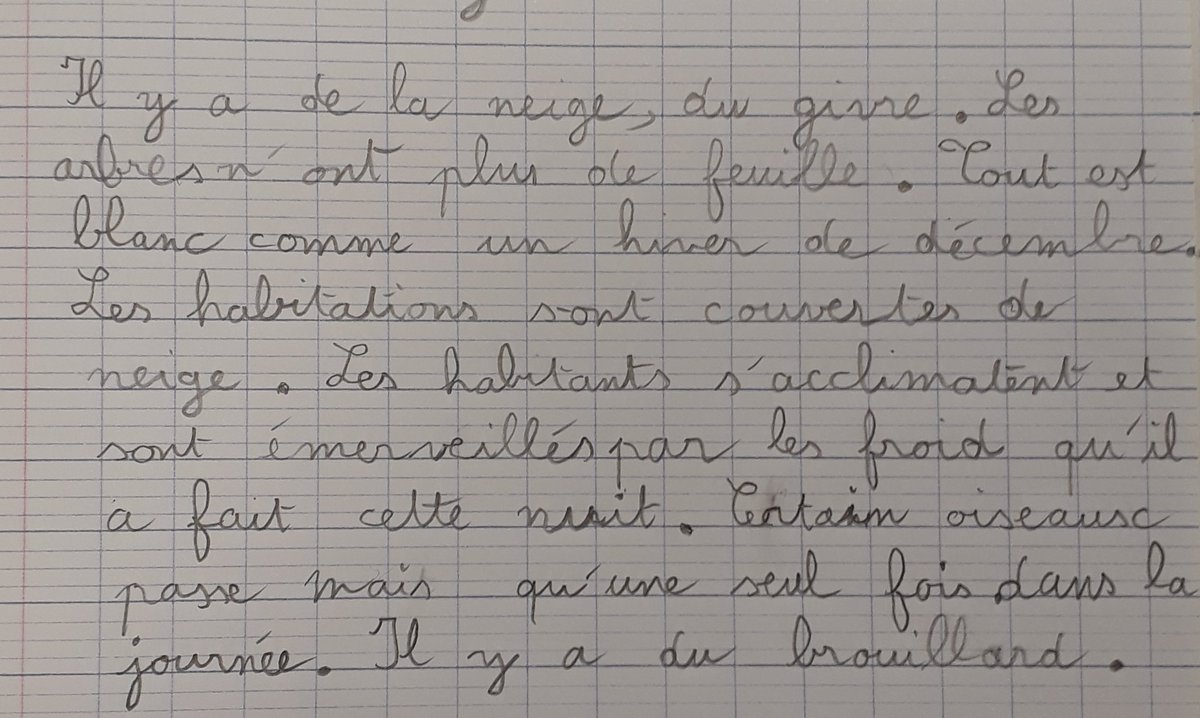 Il y a de la neige, du givre. Les
arbres n'ont plus de feuille. Tout est
blanc comme un hiver de décembre.
Les habitations sont couvertes de
neige. Les habitants s'acclimatent et
sont émerveillés par les froid qu'il
a fait cette nuit. Certain oiseaux
passe mais qu'une seul fois dans la
journée. Il y a du brouillard.